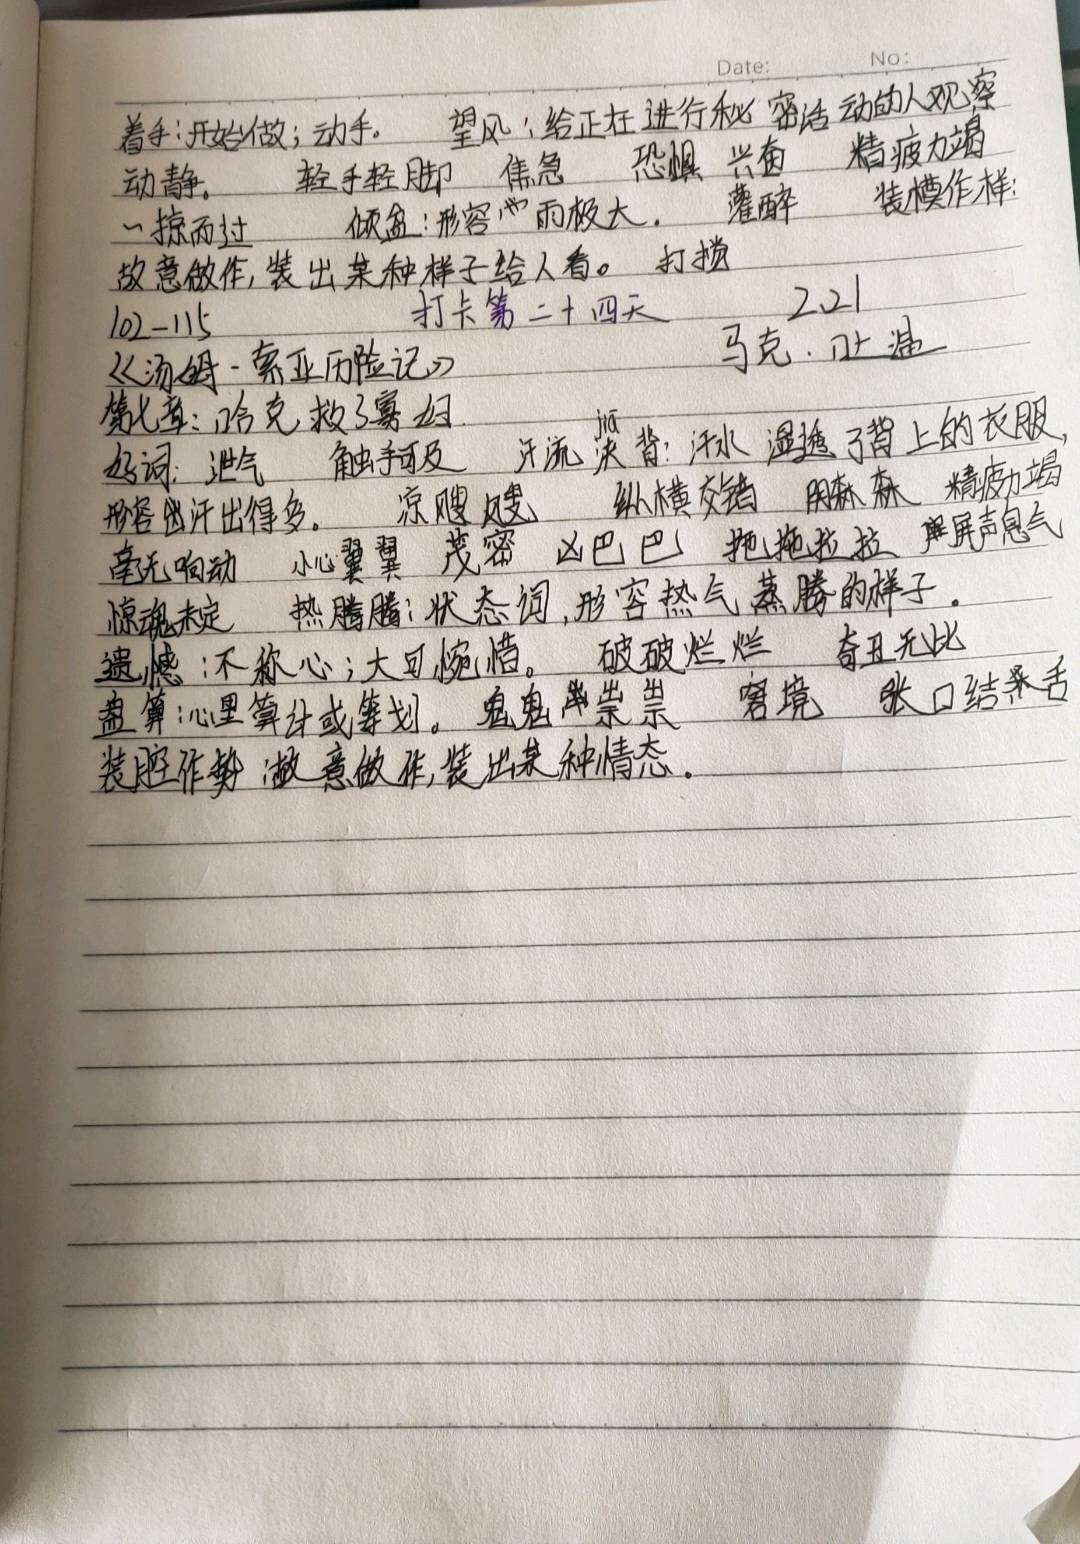 Date: No:
着手:开始做;动手。 望风:给正在进行秘密活动的人观察
动静。 轻手轻脚 焦急 恐惧 兴奋 精疲力竭
一掠而过 倾盆:形容雨极大. 灌醉 装模作样:
故意做作,装出某种样子给人看。 打搅
102-115 打卡第二十四天 2.21
《汤姆·索亚历险记》 马克·吐温
第七章:哈克救了寡妇
jiā
好词: 泄气 触手可及 汗流浃背:汗水湿透了背上的衣服,
形容出汗出得多。 凉飕飕 纵横交错 阴森森 精疲力竭
毫无响动 小心翼翼 茂密 凶巴巴 拖拖拉拉 屏声息气
惊魂未定 热腾腾:状态词,形容热气蒸腾的样子.
遗憾:不称心;大可惋惜。 破破烂烂 奇丑无比
盘算:心里算计或筹划。 鬼鬼祟祟 窘境 张口结舌
装腔作势:故意做作,装出某种情态.